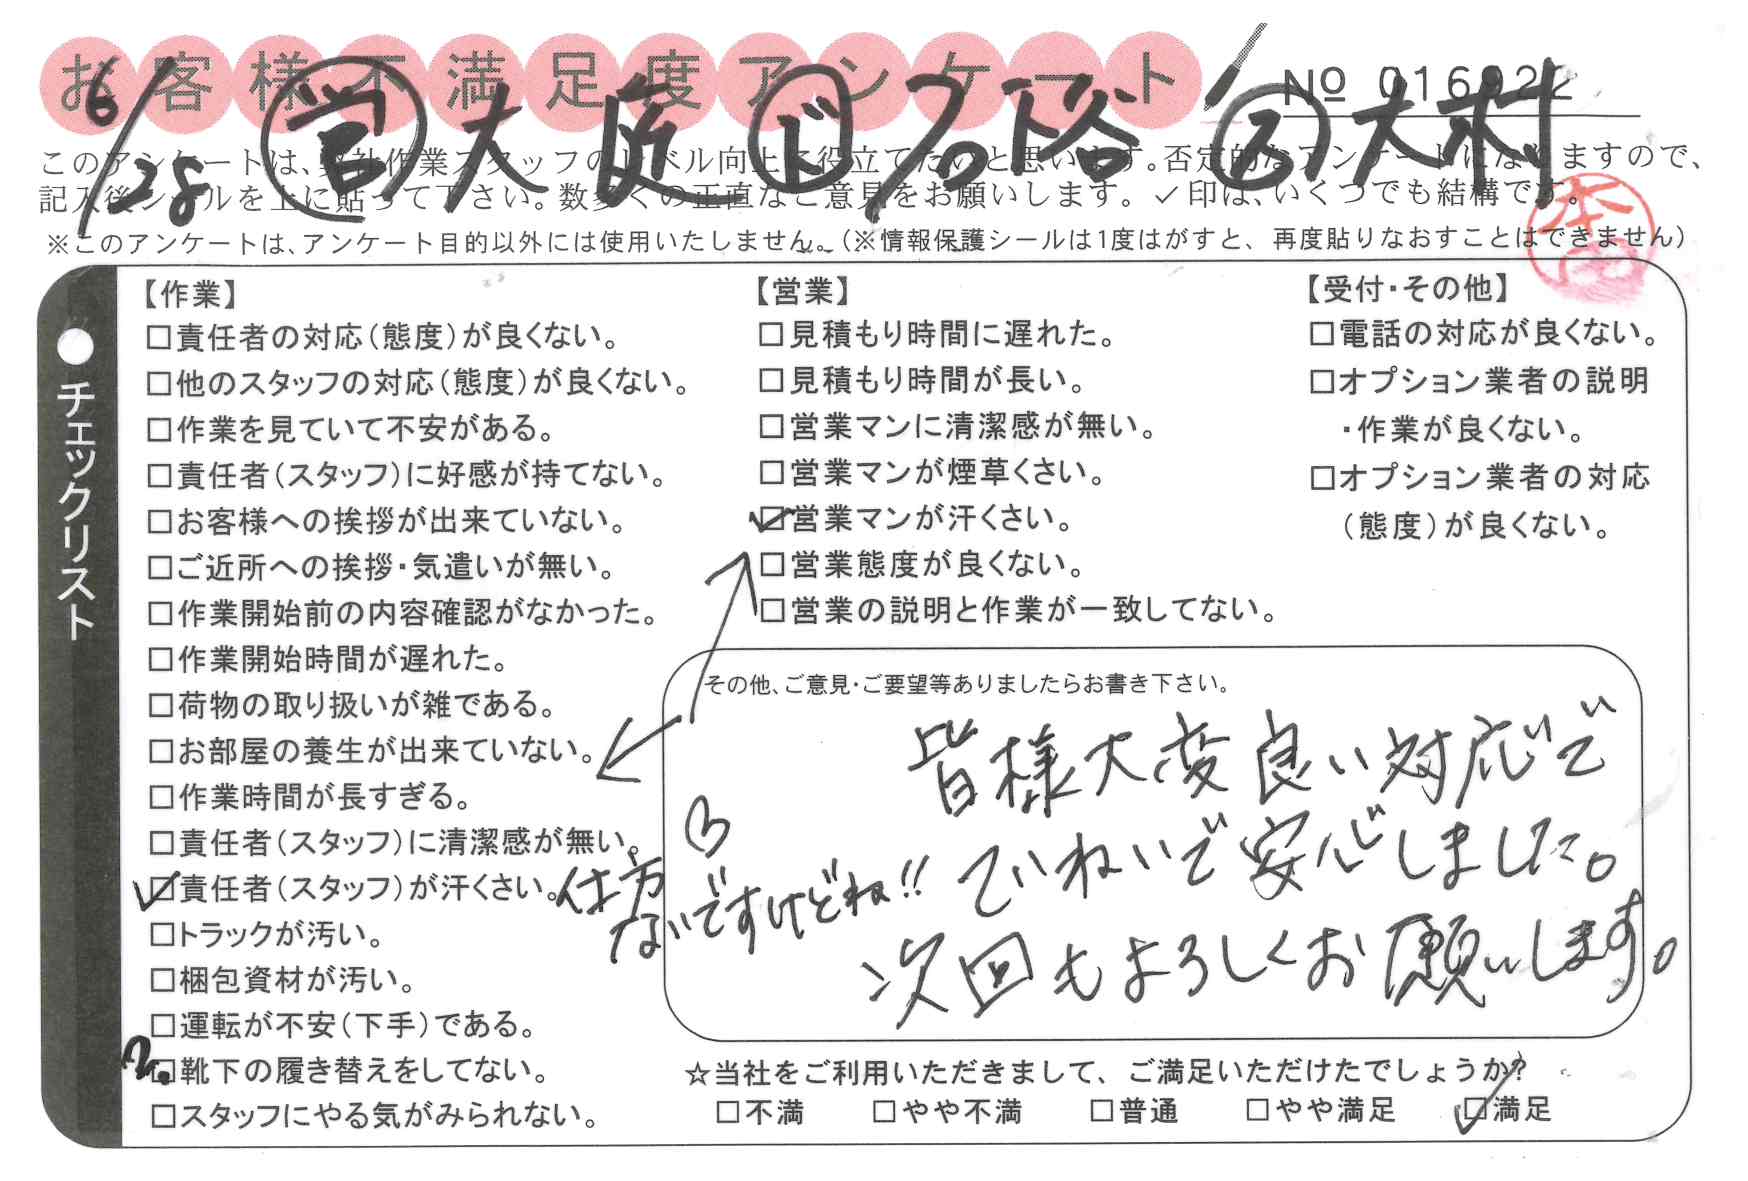 お客様不満足度アンケート
No 016922
6/28 営 大庭 ド 石谷 ア 大村
このアンケートは、弊社作業スタッフのレベル向上に役立てたいと思います。否定的なアンケートになりますので、
記入後シールを上に貼って下さい。数多くの正直なご意見をお願いします。✓印は、いくつでも結構です。
※このアンケートは、アンケート目的以外には使用いたしません。(※情報保護シールは1度はがすと、再度貼りなおすことはできません)
チェックリスト
【作業】
□責任者の対応(態度)が良くない。
□他のスタッフの対応(態度)が良くない。
□作業を見ていて不安がある。
□責任者(スタッフ)に好感が持てない。
□お客様への挨拶が出来ていない。
□ご近所への挨拶・気遣いが無い。
□作業開始前の内容確認がなかった。
□作業開始時間が遅れた。
□荷物の取り扱いが雑である。
□お部屋の養生が出来ていない。
□作業時間が長すぎる。
□責任者(スタッフ)に清潔感が無い。
☑責任者(スタッフ)が汗くさい。
□トラックが汚い。
□梱包資材が汚い。
□運転が不安(下手)である。
□靴下の履き替えをしてない。
□スタッフにやる気がみられない。
【営業】
□見積もり時間に遅れた。
□見積もり時間が長い。
□営業マンに清潔感が無い。
□営業マンが煙草くさい。
☑営業マンが汗くさい。
□営業態度が良くない。
□営業の説明と作業が一致してない。
【受付・その他】
□電話の対応が良くない。
□オプション業者の説明
・作業が良くない。
□オプション業者の対応
(態度)が良くない。
仕方
ないですけどね!!
その他、ご意見・ご要望等ありましたらお書き下さい。
皆様大変良い対応で
ていねいで安心しました。
次回もよろしくお願いします。
☆当社をご利用いただきまして、ご満足いただけたでしょうか?
□不満 □やや不満 □普通 □やや満足 ☑満足